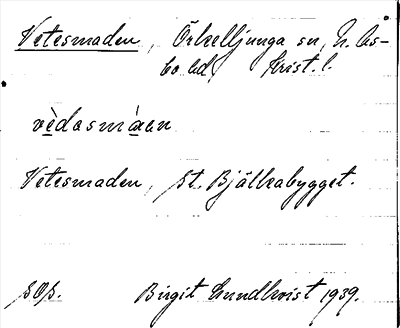 Vetesmaden, Örkelljunga sn, N. Ås-
bo hd, Krist. l.
vè̱dasmá̱an
Vetesmaden, St. Bjälkabygget.
SOS. Birgit Lundkvist 1939.